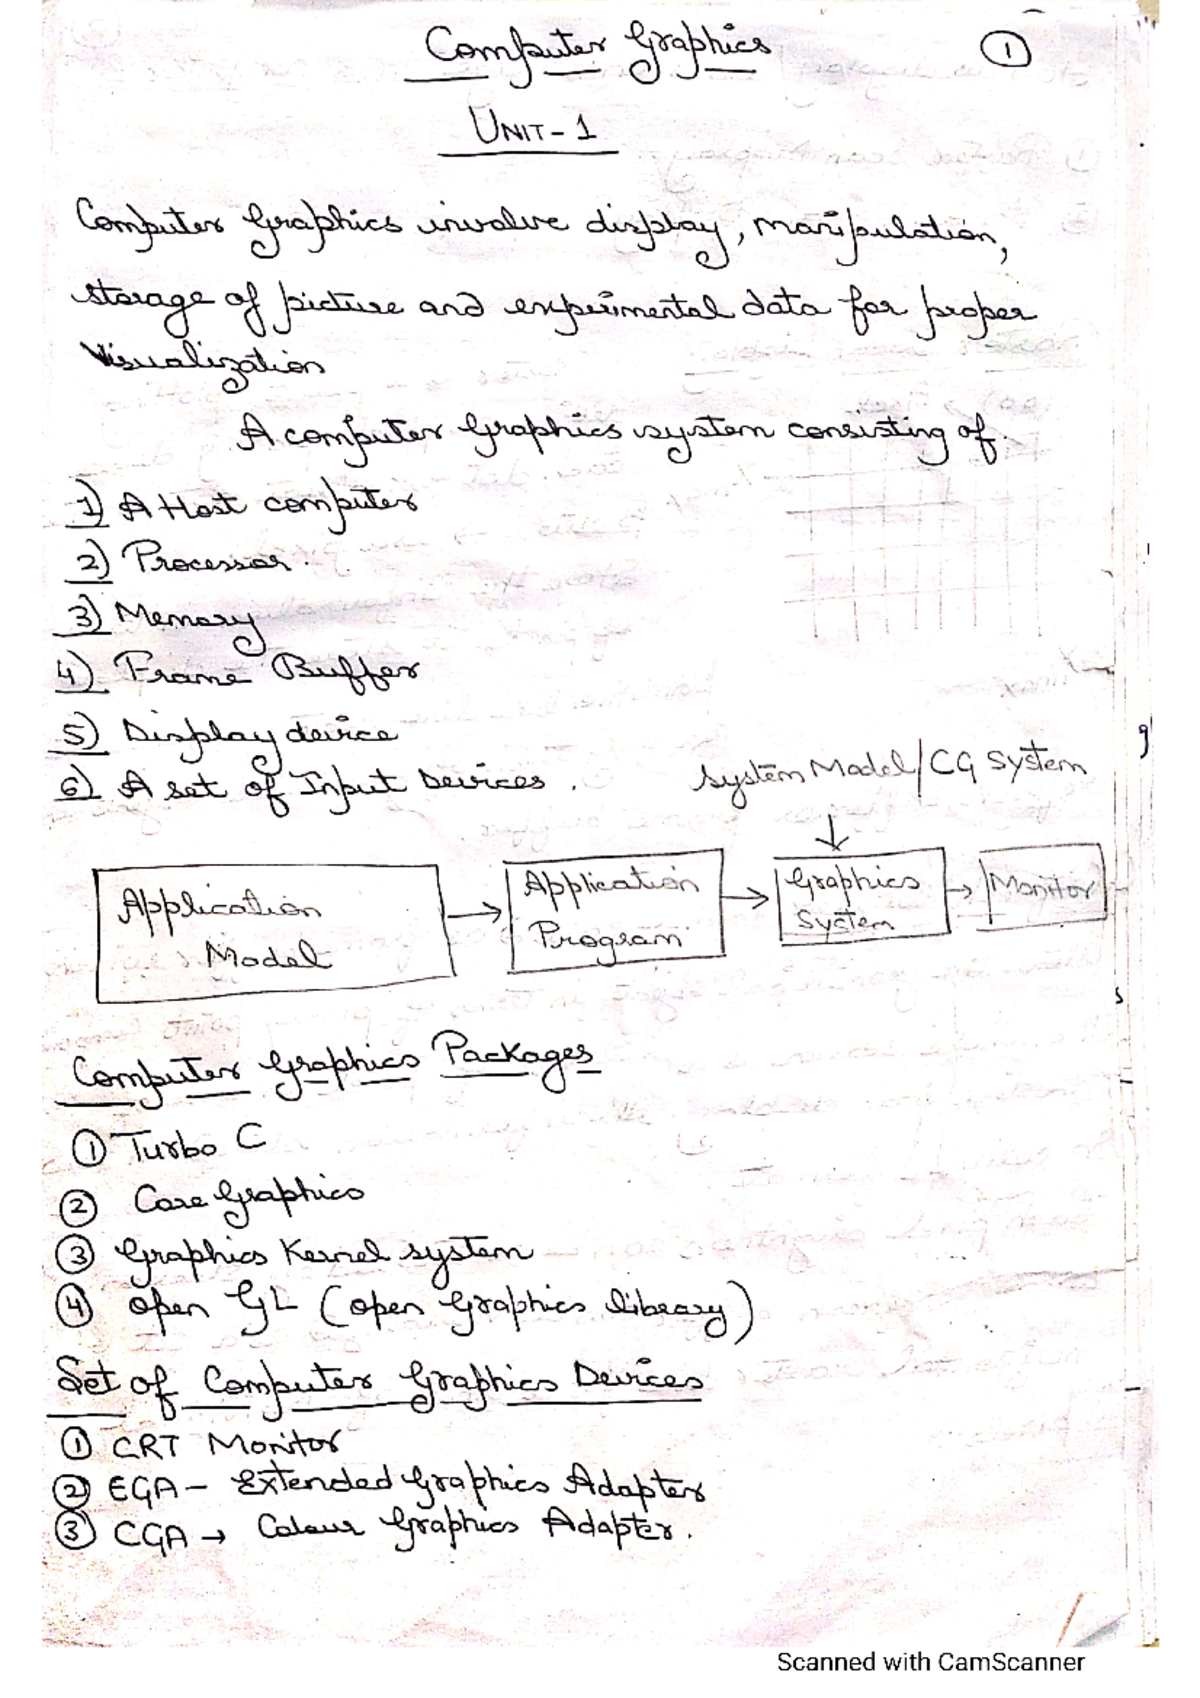 Computer Graphics
1
UNIT-1
Computer Graphics involve display, manipulation,
storage of picture and experimental data for proper
Visualization
A computer Graphics system consisting of
1) A Host computer
2) Processor.
3) Memory
4) Frame Buffer
5) Display device
6) A set of Input Devices.
System Model/CG System
Application
Model
Application
Program
Graphics
System
Monitor
Computer Graphics Packages
1 Turbo C
2 Core Graphics
3 Graphics Kernel system
4 open GL (open Graphics library)
Set of Computer Graphics Devices
1 CRT Monitor
2 EGA - Extended Graphics Adapter
3 CGA → Colour Graphics Adapter.
Scanned with CamScanner